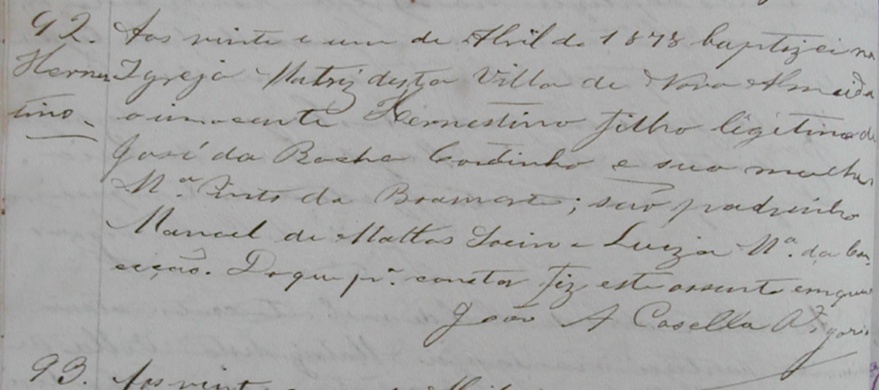 92. Aos vinte e um de Abril de 1878 baptizei na
Hernes Igreja Matriz desta Villa de Nova Almeida
tino. o innocente Hernestino filho legitimo de
José da Rocha Coutinho e sua mulher
M.ª Pinto da; são padrinhos
Manoel de Mattos e Luiza M.ª da Con
ceição. Do que p.ª constar fiz este assento em que
João A Casella Vigario
93. Aos vint